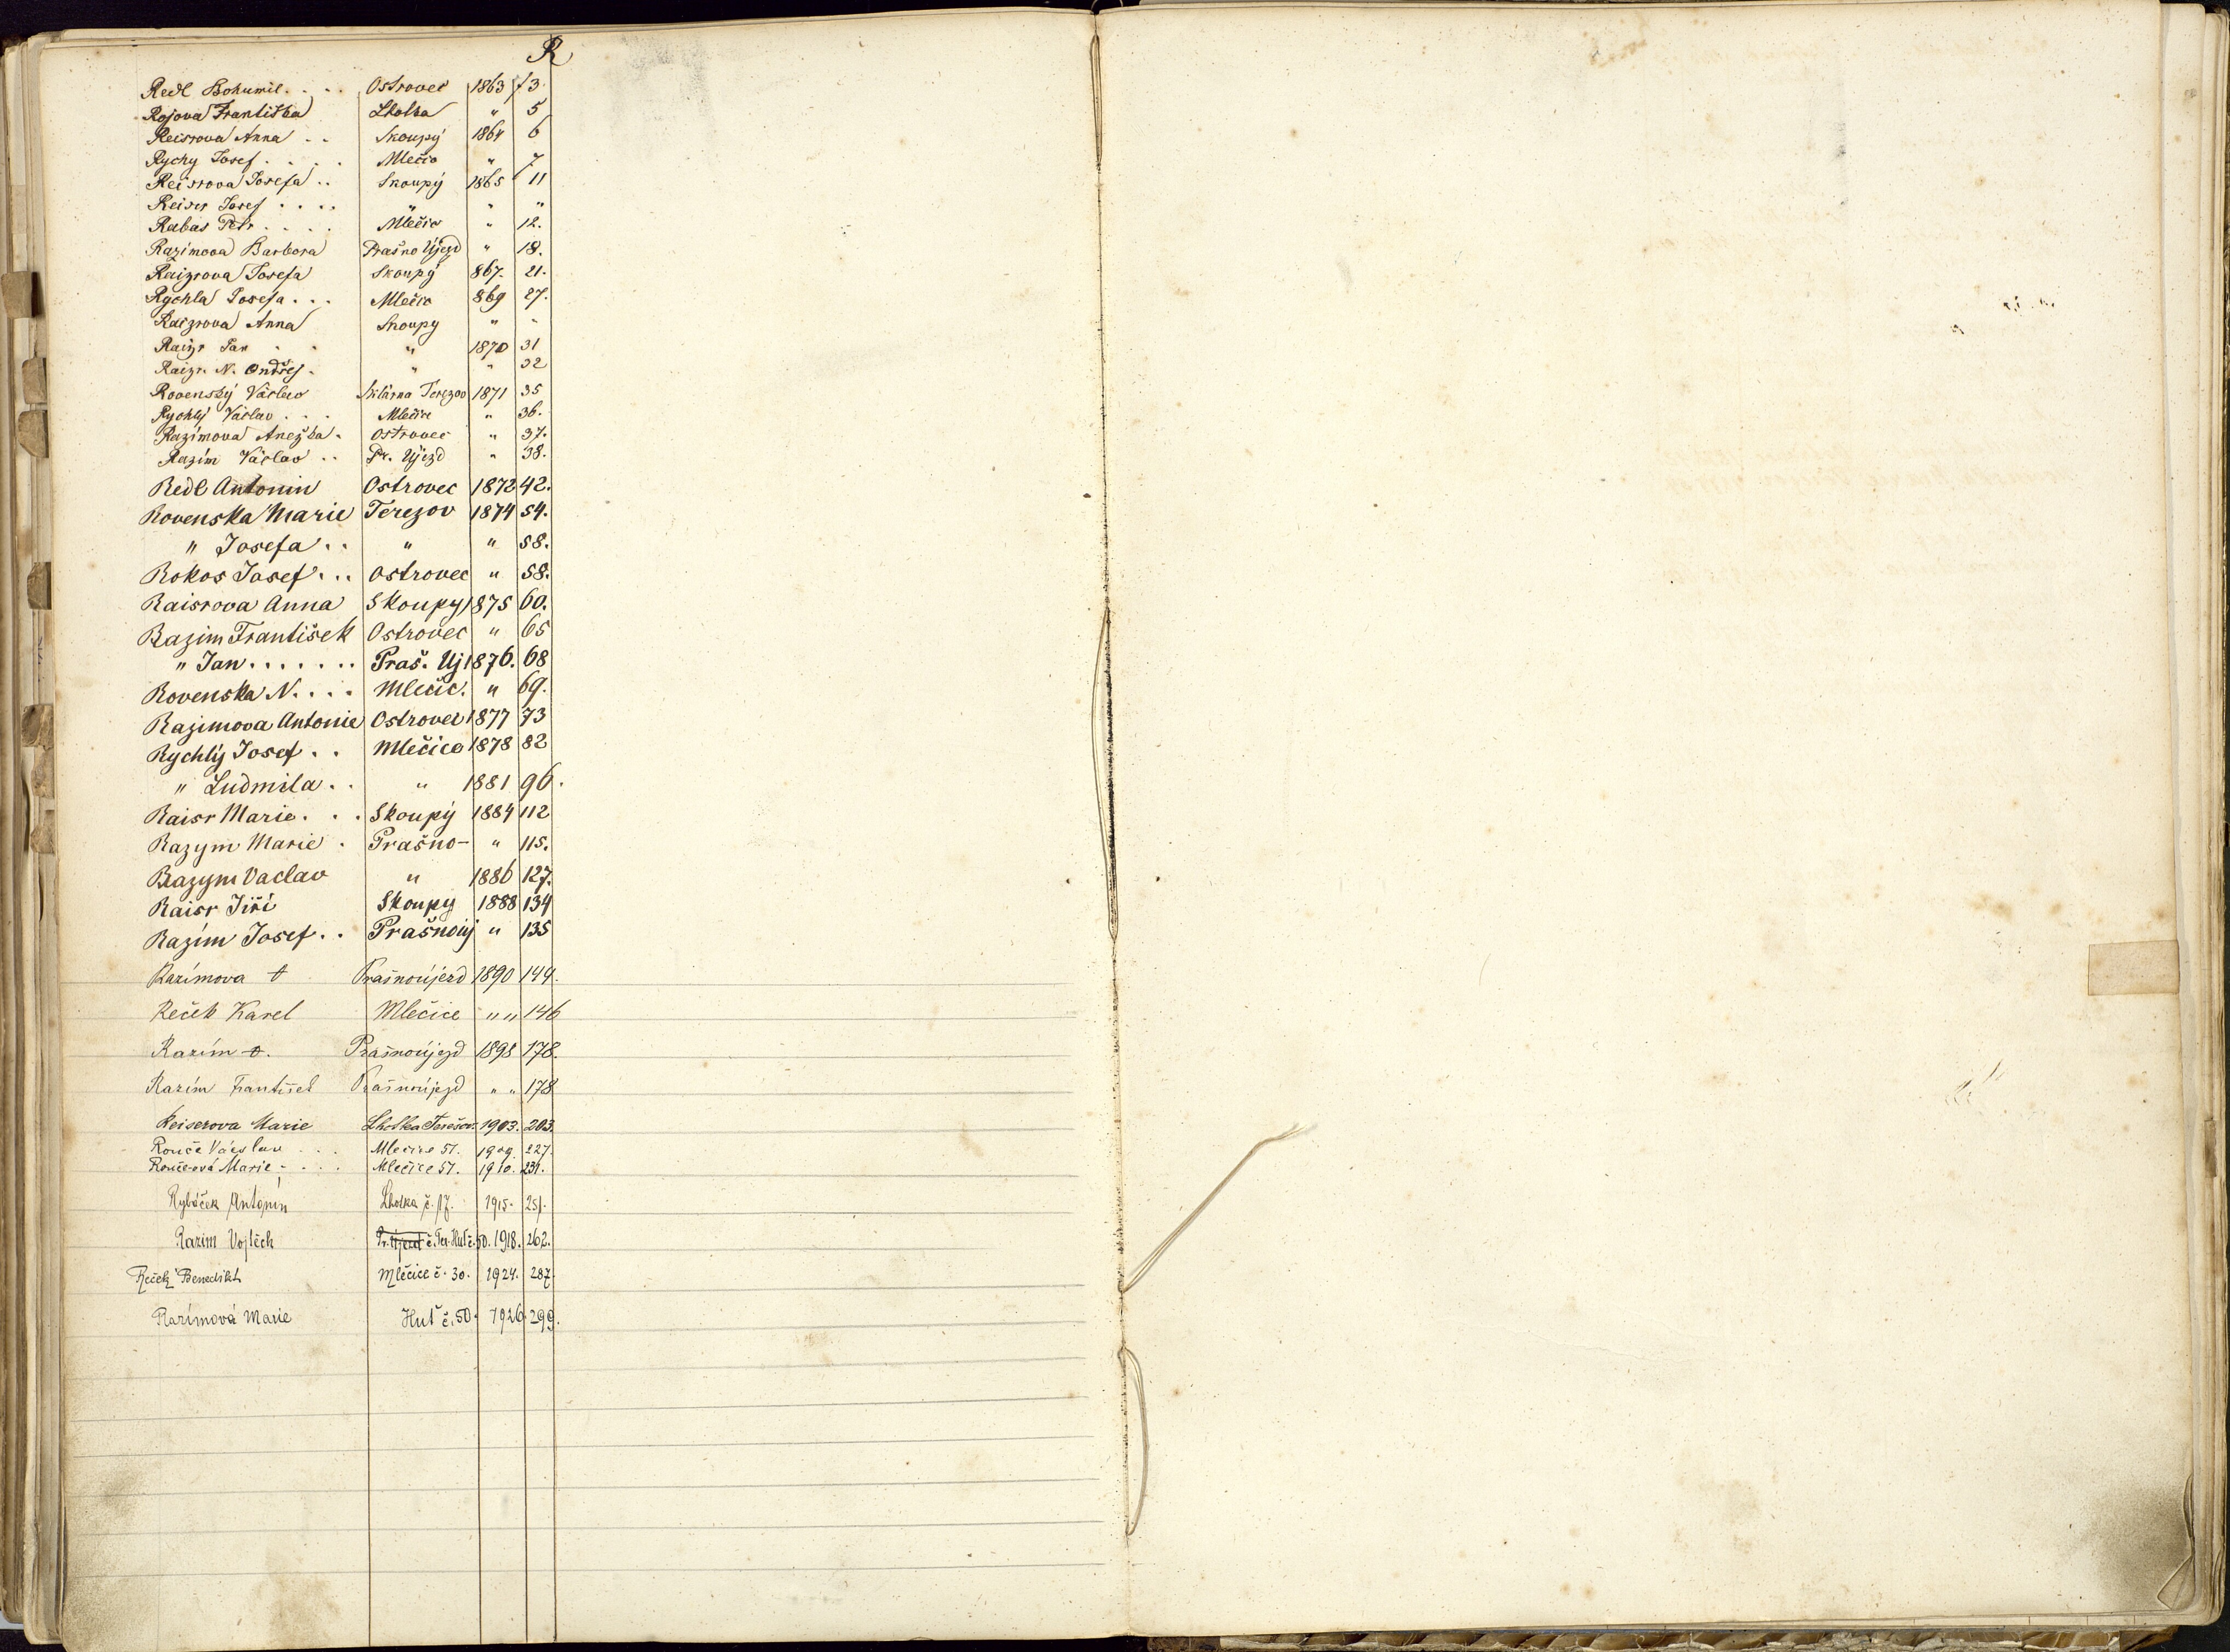 R
Redl Bohumil. . . . Ostrovec 1863 3.
Rojova Františka Lhotka " 5
Reisrova Anna . . Skoupý 1864 6
Rychy Josef . . . . Mlečic " 7
Reisrova Josefa . . Skoupý 1865 11
Reisr Josef . . . . " " "
Rabas Petr . . . . Mlečic " 12.
Razimova Barbora Prašno Újezd " 18.
Raizrova Josefa Skoupý 867. 21.
Rychla Josefa . . . Mlečic 869 27.
Raizrova Anna Skoupy " "
Raizr Jan . . " 1870 31
Raizr. N. Ondřej . " " 32
Rovenský Václav Sklárna Terezov 1871 35
Rychlý Václav . . . Mlečice " 36.
Razimova Anežka . Ostrovec " 37.
Razím Václav . . Pr. Újezd " 38.
Redl Antonin Ostrovec 1872 42.
Rovenska Marie Terezov 1874 54.
" Josefa . . " " 58.
Rokos Josef . . . Ostrovec " 58.
Raisrova Anna Skoupy 1875 60.
Razim František Ostrovec " 65
" Jan . . . . . . . Praš. Uj 1876. 68
Rovenska N. . . . Mlečic. " 69.
Razimova Antonie Ostrovec 1877 73
Rychlý Josef . . Mlečice 1878 82
" Ludmila . . " 1881 96.
Raisr Marie . . . Skoupý 1884 112
Razym Marie . Prašno- " 115.
Razym Vaclav " 1886 127.
Raisr Jiří Skoupy 1888 134
Razím Josef . . Prašnoúj " 135
Razímova † Prašnoújezd 1890 144.
Reček Karel Mlečice " " 146
Razím †. Prašnoújezd 1898 178.
Razím František Prašnoújezd " " 178
Reiserova Marie Lhotka Terešov. 1903. 203.
Rouče Václav . . . Mlečice 51. 1909. 227.
Roučeová Marie - . . . Mlečice 57. 1910. 231.
Rybáček Antonín Lhotka č. 17. 1915. 251.
Razím Vojtěch Pr. Újezd č. Ter. Huť č. 50. 1918. 262.
Reček Benedikt Mlečice č. 30. 1924. 287.
Razímová Marie Huť č. 50. 1926. 299.